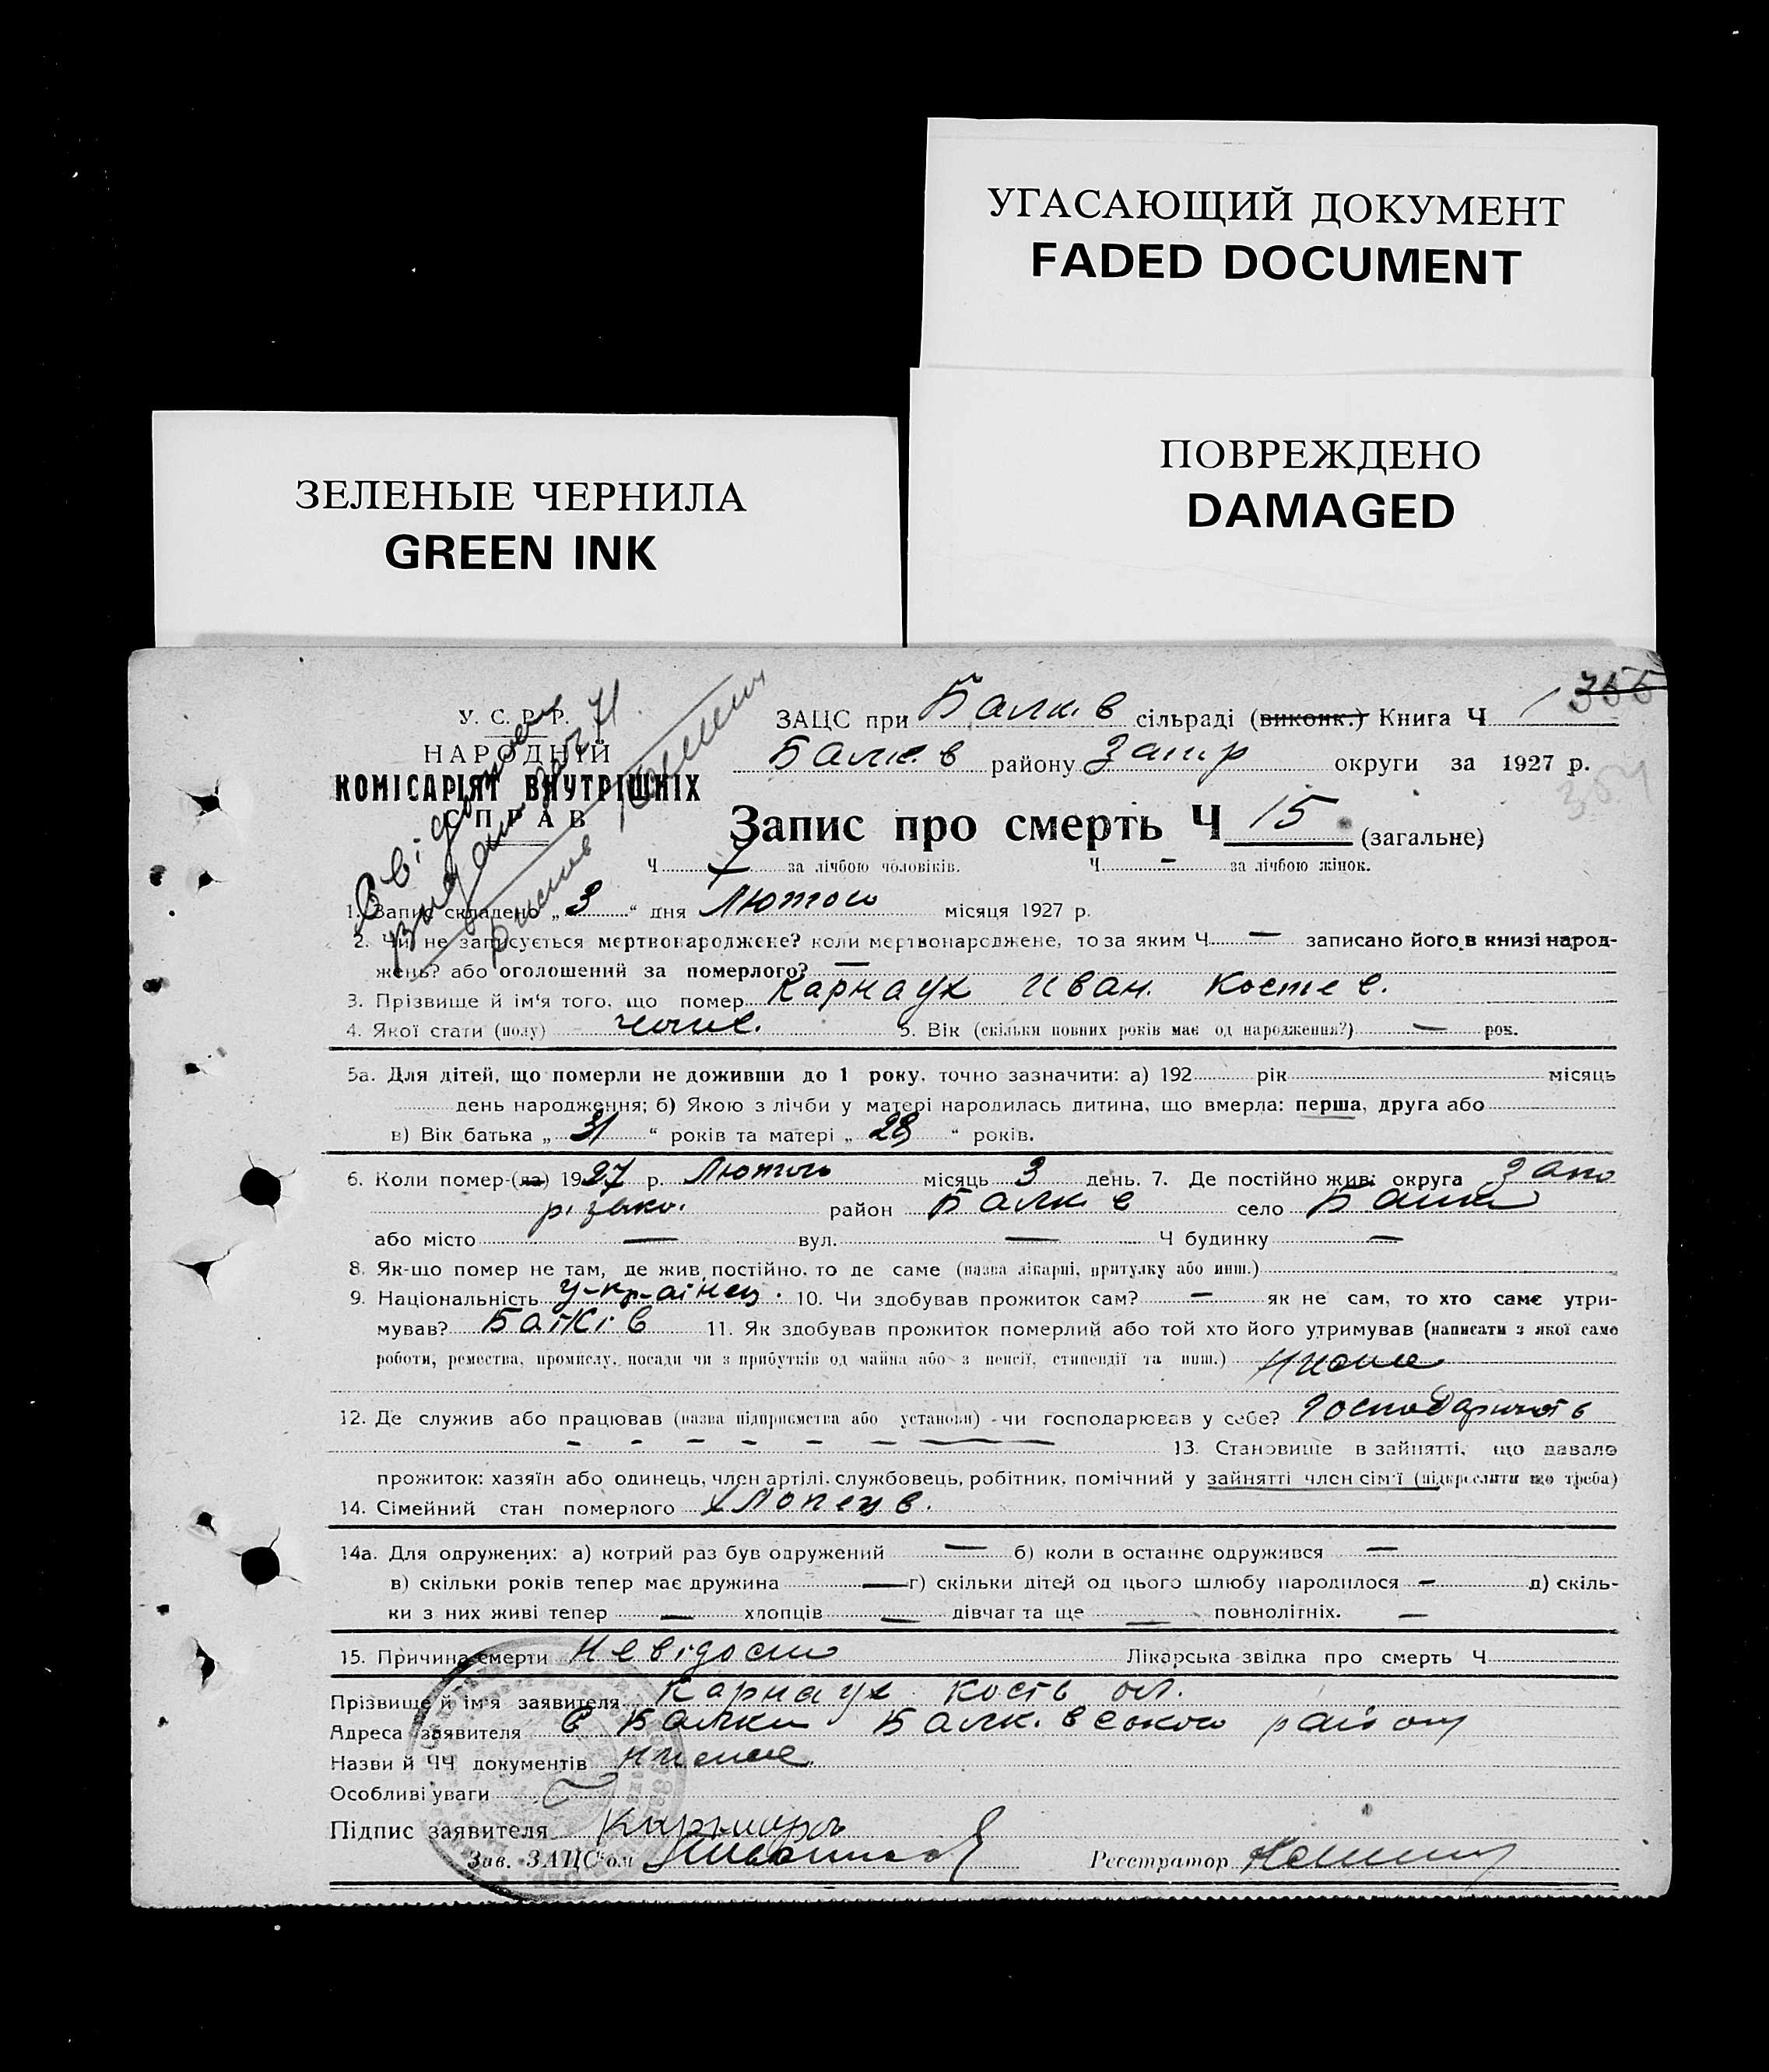 УГАСАЮЩИЙ ДОКУМЕНТ
FADED DOCUMENT
ПОВРЕЖДЕНО
DAMAGED
ЗЕЛЕНЫЕ ЧЕРНИЛА
GREEN INK
355
354
У. С. Р. Р.
НАРОДНІЙ
КОМІСАРІЯТ ВНУТРІШНІХ
СПРАВ
ЗАЦС при Балків сільраді (виконк.) Книга Ч 1
Балків району Запр округи за 1927 р.
Запис про смерть Ч 15 (загальне)
Ч за лічбою чоловіків. Ч — за лічбою жінок.
1. Запис складено „3“ дня Лютого місяця 1927 р.
2. Чи не записується мертвонароджене? коли мертвонароджене, то за яким Ч — записано його в книзі народ-
жень? або оголошений за померлого? —
3. Прізвище й ім'я того, що помер Карнаух Иван. Костев.
4. Якої стати (полу) 5. Вік (скільки повних років має од народження?) — рок.
5а. Для дітей, що померли не доживши до 1 року, точно зазначити: а) 192 рік місяць
день народження; б) Якою з лічби у матері народилась дитина, що вмерла: перша, друга або
в) Вік батька „31“ років та матері „28“ років.
6. Коли помер-(ла) 1927 р. Лютого місяць 3 день. 7. Де постійно жив: округа Запо
різько. район Балків село Балки
або місто — вул. — Ч будинку —
8. Як-що помер не там, де жив постійно, то де саме (назва лікарні, притулку або инш.)
9. Національність Українец. 10. Чи здобував прожиток сам? — як не сам, то хто саме утри-
мував? Батків 11. Як здобував прожиток померлий або той хто його утримував (написати з якої саме
роботи, ремества, промислу, посади чи з прибутків од майна або з пенсії, стипендії та инш.)
12. Де служив або працював (назва підприємства або установи) - чи господарював у себе?
— — — — — — — 13. Становище в зайнятті, що давало
прожиток: хазяїн або одинець, член артілі, службовець, робітник, помічний у зайнятті член сім'ї (підкреслити що треба)
14. Сімейний стан померлого хлопец в.
14а. Для одружених: а) котрий раз був одружений — б) коли в останнє одружився —
в) скільки років тепер має дружина — г) скільки дітей од цього шлюбу народилося — д) скіль-
ки з них живі тепер — хлопців — дівчат та ще — повнолітніх. —
15. Причина смерти Невідомо Лікарська звідка про смерть Ч
Прізвище й ім'я заявителя Карнаух Кость
Адреса заявителя с Балки Балківського району
Назви й ЧЧ документів
Особливі уваги
Підпис заявителя
Зав. ЗАЦС'ом
Реєстратор